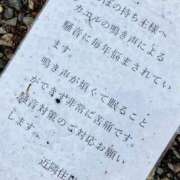 田んぼの持ち主様へ
カエルの鳴き声による
騒音に毎年悩まされてい
ます。
鳴き声が煩くて眠ること
ができず非常に苦痛です。
騒音対策のご対応お願い
します。
近隣住民